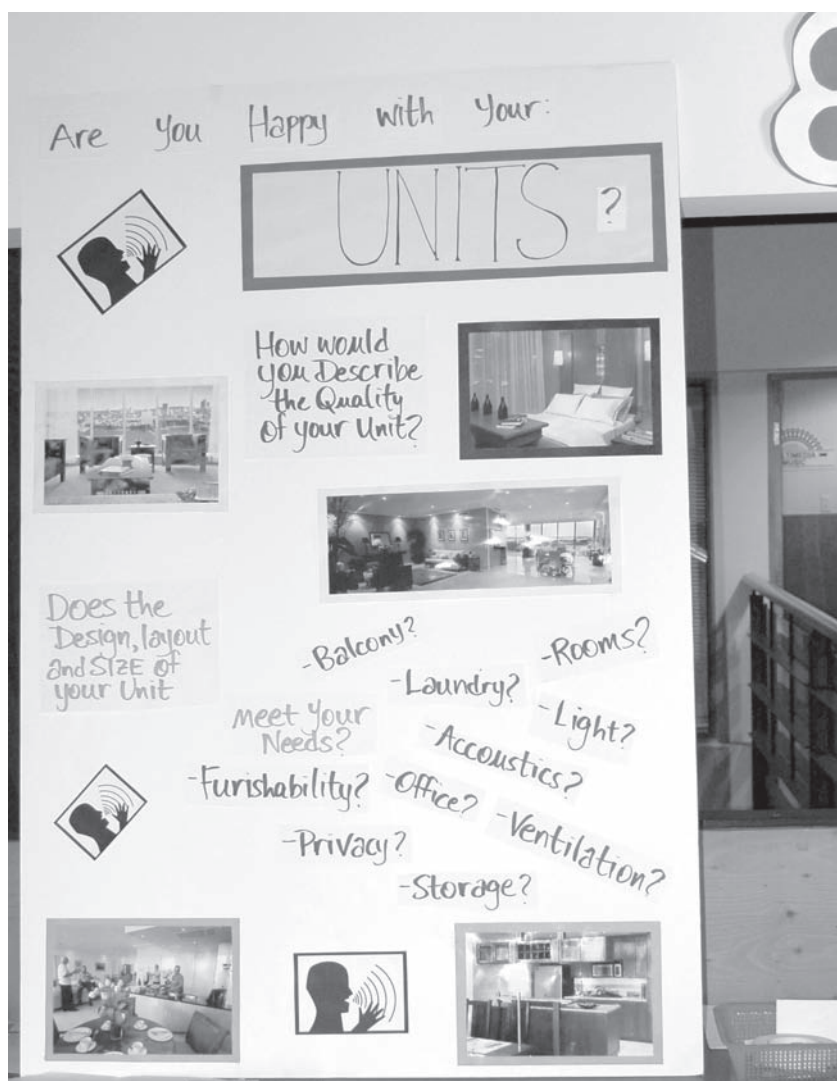 Are you Happy with your:
UNITS ?
How would
you Describe
the Quality
of your Unit?
Does the
Design, layout
and SIZE of
your Unit
meet your
Needs?
-Balcony?
-Rooms?
-Laundry?
-Light?
-Accoustics?
-Furishability?
-Office?
-Ventilation?
-Privacy?
-Storage?
8
MUSIC